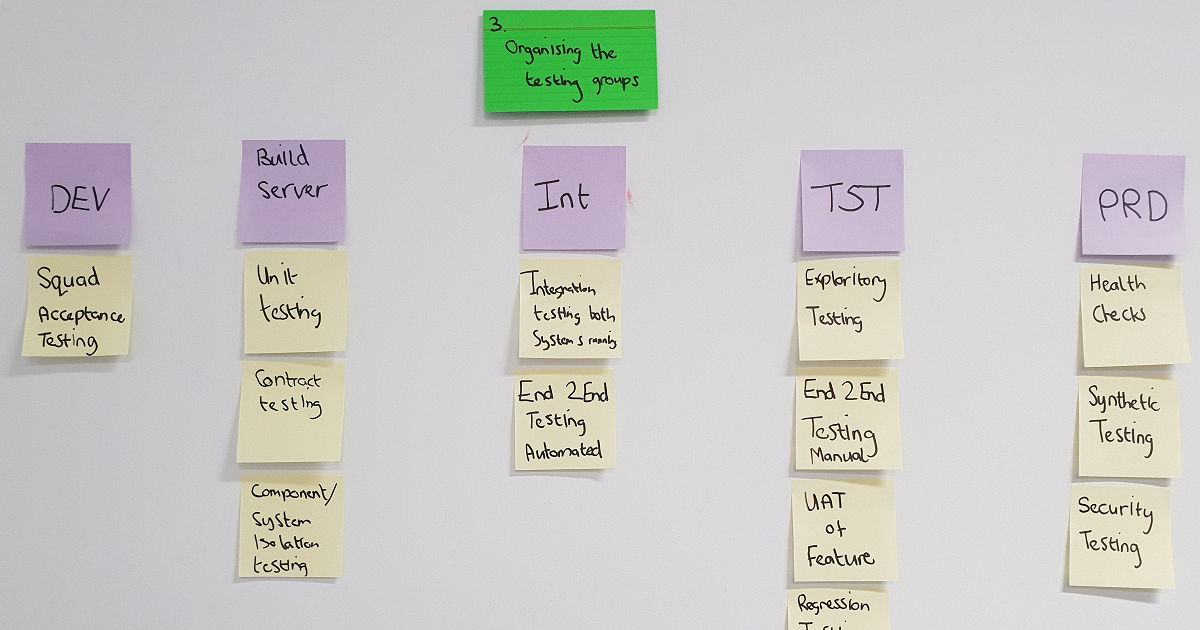 3.
Organising the
testing groups
DEV
Squad
Acceptance
Testing
Build
Server
Unit
testing
Contract
testing
Component/
System
Isolation
testing
Int
Integration
testing both
Systems running
End 2 End
Testing
Automated
TST
Exploritory
Testing
End 2 End
Testing
Manual
UAT
of
Feature
Regression
PRD
Health
Checks
Synthetic
Testing
Security
Testing